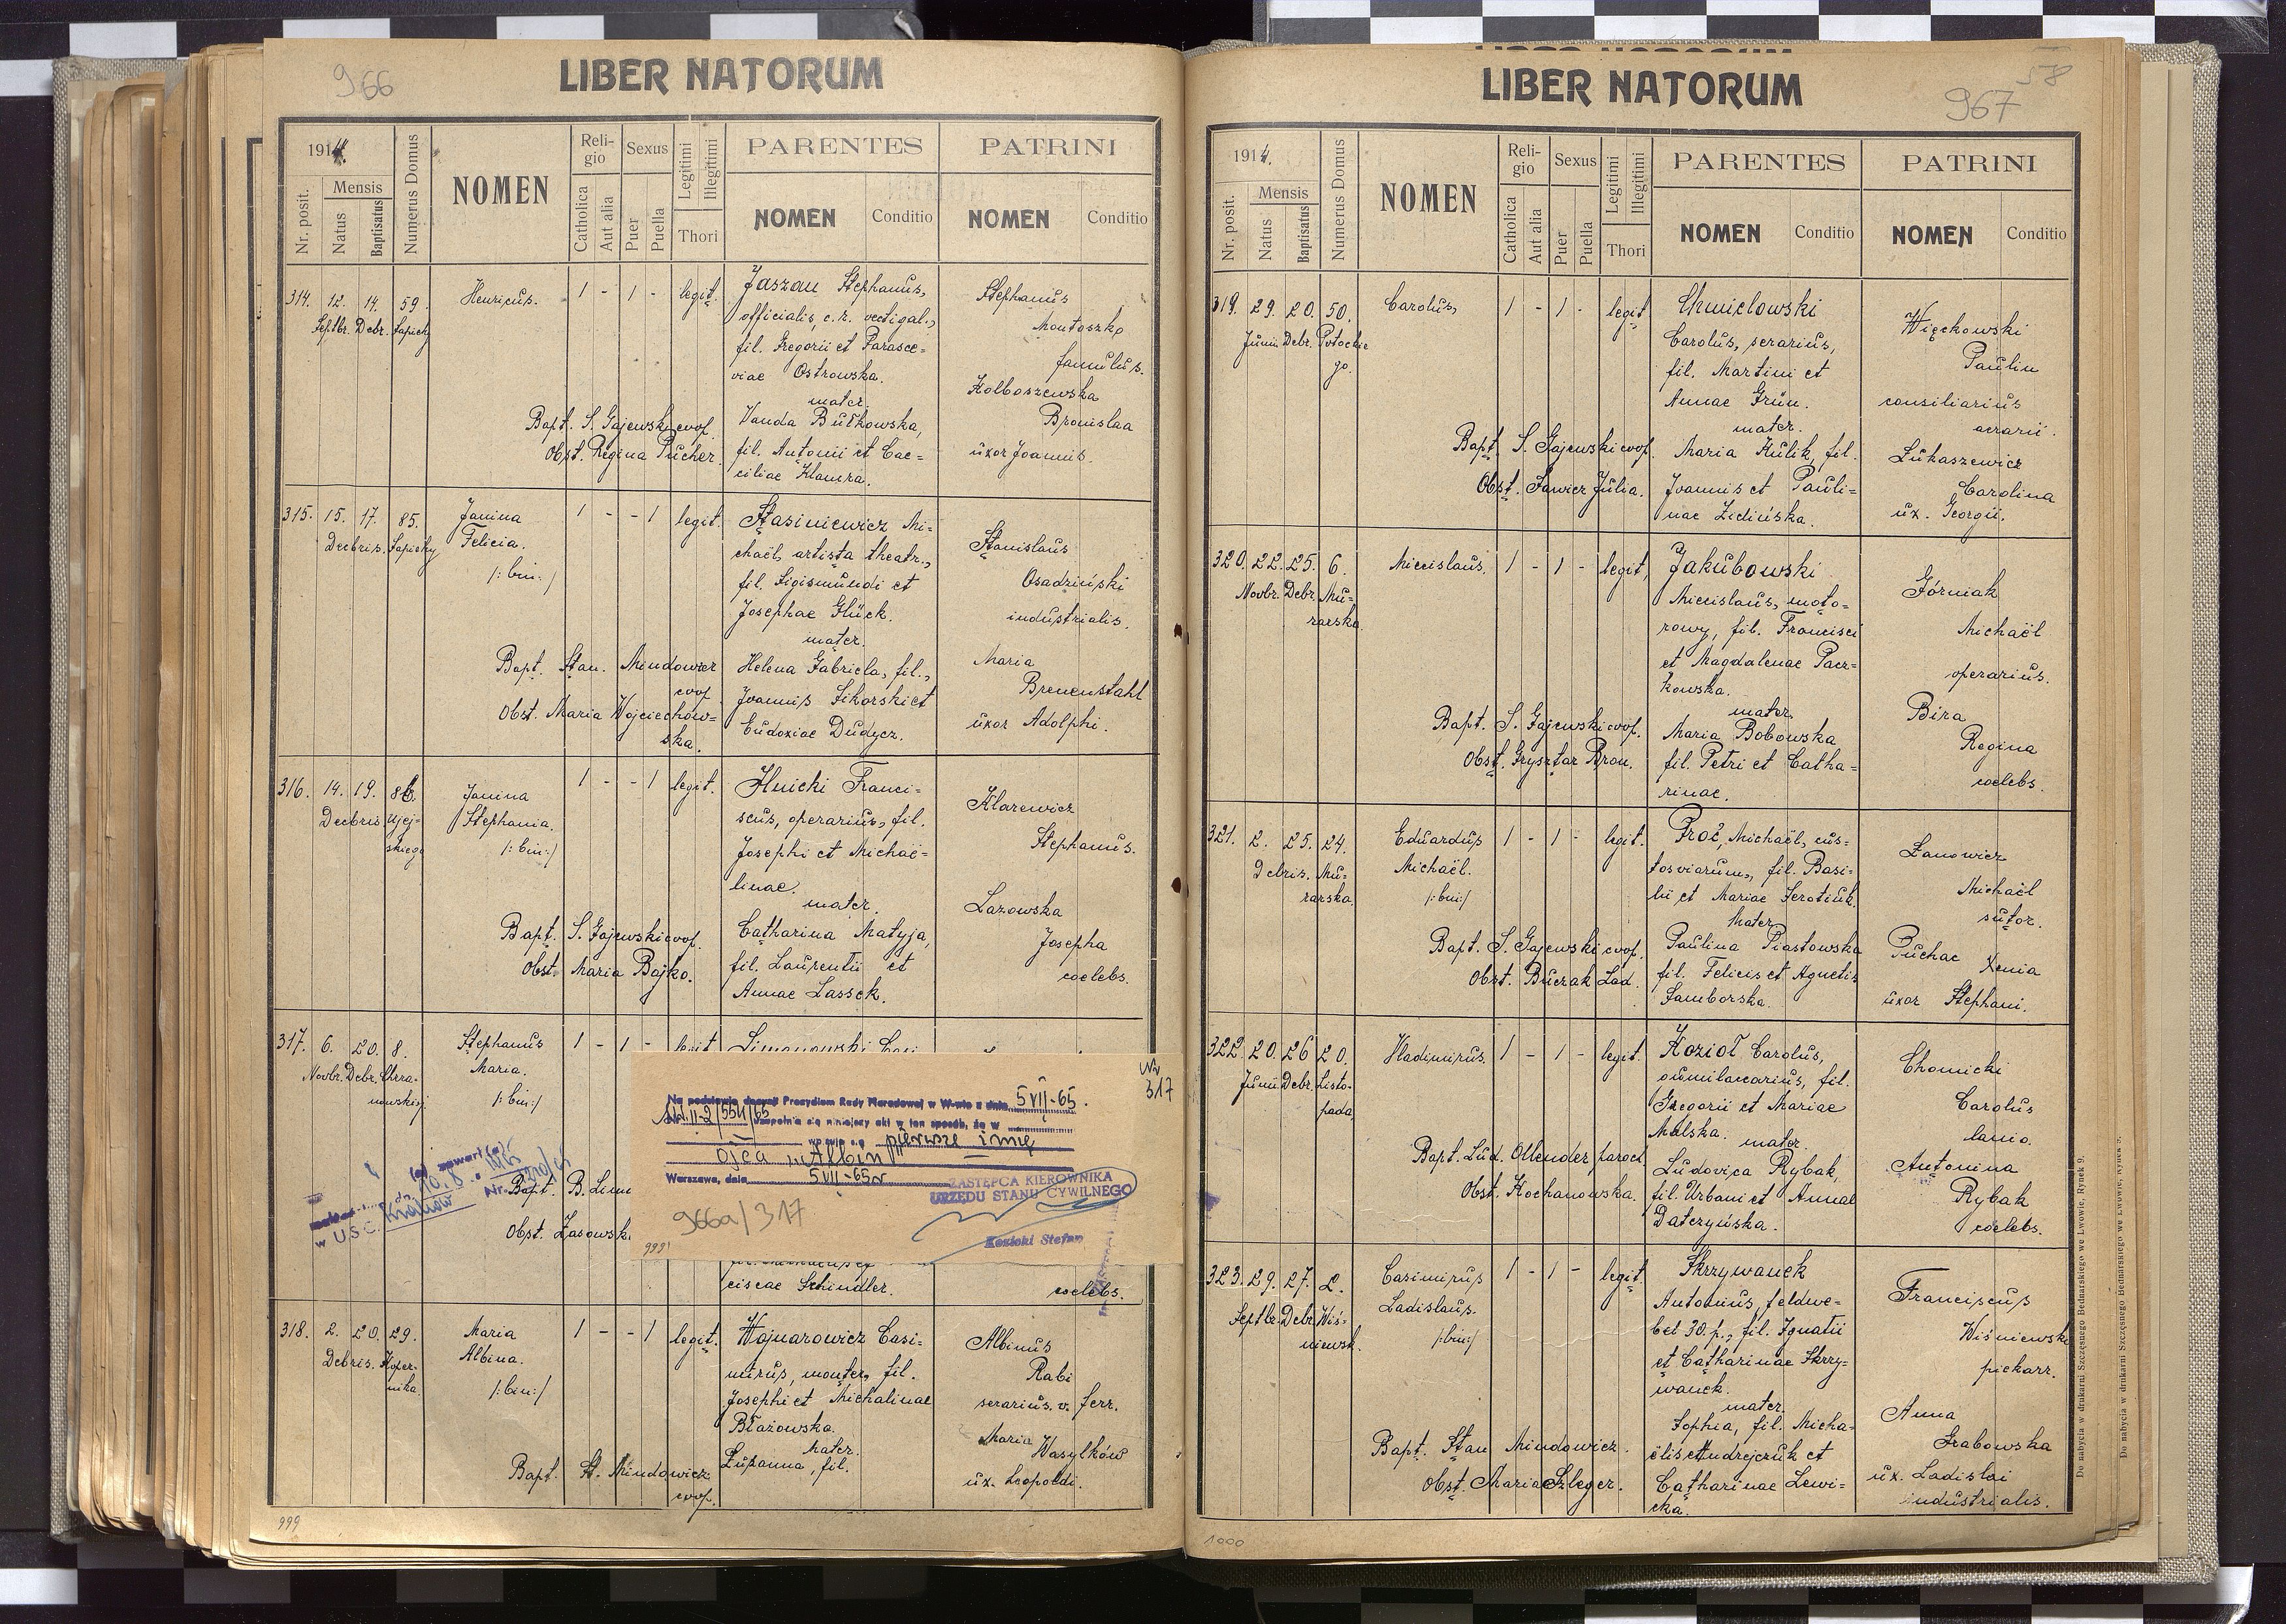 966
LIBER NATORUM
1914.
Nr. posit.
Mensis
Natus
Baptisatus
Numerus Domus
NOMEN
Religio
Catholica
Aut alia
Sexus
Puer
Puella
Legitimi
Illegitimi
Thori
PARENTES
NOMEN
Conditio
PATRINI
NOMEN
Conditio
314. 12. 14. 59. Henricus. 1 - 1 - legit. Jaszan Stephanus,
Septbr. Debr. Sapiehy
officialis c. r. vectigal.,
fil. Gregorii et Parasce=
viae Ostrowska.
mater.
Vanda Butkowska,
fil. Antonii et Cae=
ciliae
Bapt. S. Gajewski coop.
Obst. Regina Pucher.
Stephanus
Montoszko
famulus.
Kolboszewska
Bronislaa
uxor Joannis.
315. 15. 17. 85. Janina 1 - - 1 legit. Stasiniewicz Mi=
Decbris. Sapiehy Felicia.
/: bin :/
chaël, artista theatr.,
fil. Sigismundi et
Josephae Glück.
mater.
Helena Gabriela, fil.,
Joannis Sikorski et
Eudoxiae Dudycz.
Bapt. Stan. Mindowicz
coop
Obst. Maria Wojciechow=
ska.
Stanislaus
Osadziński
industrialis.
Maria
Brenenstahl
uxor Adolphi.
316. 14. 19. 86. Janina 1 - - 1 legit. Hnicki Franci=
Decbris Ujej= Stephania.
skiego /: bin :/
scus, operarius, fil.
Josephi et Michaë=
linae.
mater.
Catharina Matyja,
fil. Laurentii et
Annae Lassek.
Bapt. S. Gajewski coop.
Obst. Maria Bajko.
Klarewicz
Stephanus.
Lazowska
Josepha
coelebs.
317. 6. 20. 8. Stephanus 1 - 1 - legit
Novbr. Debr. Chrza= Maria.
nowskiej. /: bin :/
w U.S.C. Kraków
Bapt. B.
Obst.
Nr 317
Na podstawie decyzji Prezydium Rady Narodowej w W-wie z dnia 5 VII-65.
uzupełnia się niniejszy akt w ten sposób, że w
wpisuje się pierwsze imię
ojca "Albin"
Warszawa, dnia 5 VII-65 r
ZASTĘPCA KIEROWNIKA
URZĘDU STANU CYWILNEGO
Kozicki Stefan
966a/317
999¹
ciscae Schindler.
coelebs.
318. 2. 20. 29. Maria 1 - - 1 legit. Wojnarowicz Casi=
Debris. Koper= Albina.
nika. /: bin :/
mirus, monter, fil.
Josephi et Michalinae
Błażowska.
Mater.
Zuzanna, fil.
Bapt. St. Mindowicz
coop.
Albinus
Rabi
serarius v. ferr.
Maria
Wasylków
ux. Leopoldi.
999
58
967
LIBER NATORUM
1914.
Nr. posit.
Mensis
Natus
Baptisatus
Numerus Domus
NOMEN
Religio
Catholica
Aut alia
Sexus
Puer
Puella
Legitimi
Illegitimi
Thori
PARENTES
NOMEN
Conditio
PATRINI
NOMEN
Conditio
319. 29. 20. 50. Carolus, 1 - 1 - legit Chmielowski
Junii Debr. Potockie
go.
Carolus, serarius,
fil. Martini et
Annae Grün.
mater.
Maria Kulik, fil.
Joannis et Pauli=
nae Zielińska.
Bapt. S. Gajewski coop.
Obst. Sawicz Julia.
Więckowski
Paulin
consiliarius
aerarii.
Lukaszewicz
Carolina
ux. Georgii.
320. 22. 25. 6. Miecislaus, 1 - 1 - legit, Jakubowski
Novbr. Debr. Mu=
rarska.
Miecislaus, moto=
rowy, fil. Francisci
et Magdalenae Pacz=
kowska.
mater.
Maria Bobowska
fil. Petri et Catha=
rinae.
Bapt. S. Gajewski coop.
Obst. Grysztar Bron.
Górniak
Michaël
operarius.
Bira
Regina
coelebs.
321. 2. 25. 24. Eduardus 1 - 1 - legit. Proć, Michaël, cus=
Debris. Mu= Michaël.
rarska. /: bin :/
tos viarum, fil. Basi=
lii et Mariae Serotiuk.
Mater
Paulina Piastowska
fil. Felicis et Agnetis
Samborska.
Bapt. S. Gajewski coop.
Obst. Buczak Lad.
Zanowicz
Michaël
sutor.
Puchac
Xenia
uxor Stephani.
322. 20. 26 20. Vladimirus. 1 - 1 - legit. Kozioł Carolus,
Junii. Debr. Listo=
pada
fil.
Gregorii et Mariae
Malska. mater.
Ludovica Rybak,
fil. Urbani et Annae
Datczyńska.
Bapt. Lud. Ollender paroch
Obst. Kochanowska.
Chomicki
Carolus
lanio.
Antonina
Rybak
coelebs.
323. 29. 27. 2. Casimirus 1 - 1 - legit. Skrzywanek
Septbr. Debr. Wiś= Ladislaus.
niewsk. /: bin :/
Antonius, feldwe=
bel 30. p., fil. Ignatii
et Catharinae Skrzy=
wanek.
mater
Sophia, fil. Micha=
ëlis Andrejczuk et
Catharinae Lewi=
cka.
Bapt. Stan Mindowicz.
Obst. Maria Szleger.
Franciscus
Wiśniewski
piekarz.
Anna
Grabowska
ux. Ladislai
industrialis.
Do nabycia w drukarni Szczęsnego Bednarskiego we Lwowie, Rynek 9.
Do nabycia w drukarni Szczęsnego Bednarskiego we Lwowie, Rynek 9.
1000